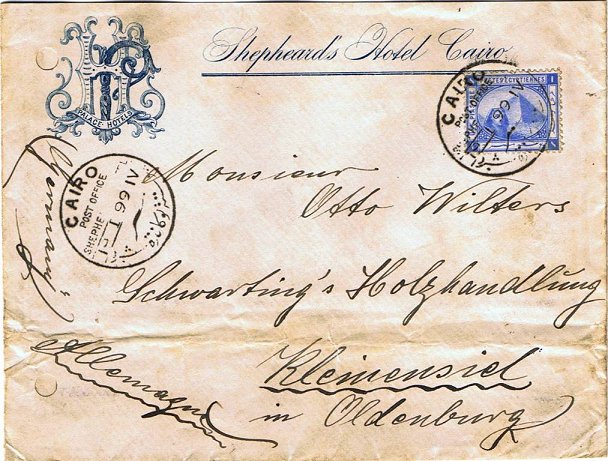 Shepheard's Hotel Cairo
PALACE HOTELS
CAIRO
POST OFFICE
99 IV
CAIRO
POST OFFICE
SHEPHE
99 IV
Germany
Monsieur
Otto Wilters
Schwarting's Holzhandlung
Allemagne
Kleinensiel
in Oldenburg